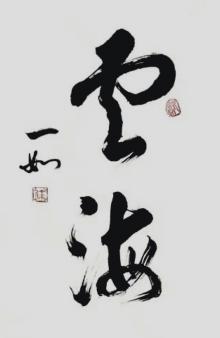 雲海
一如